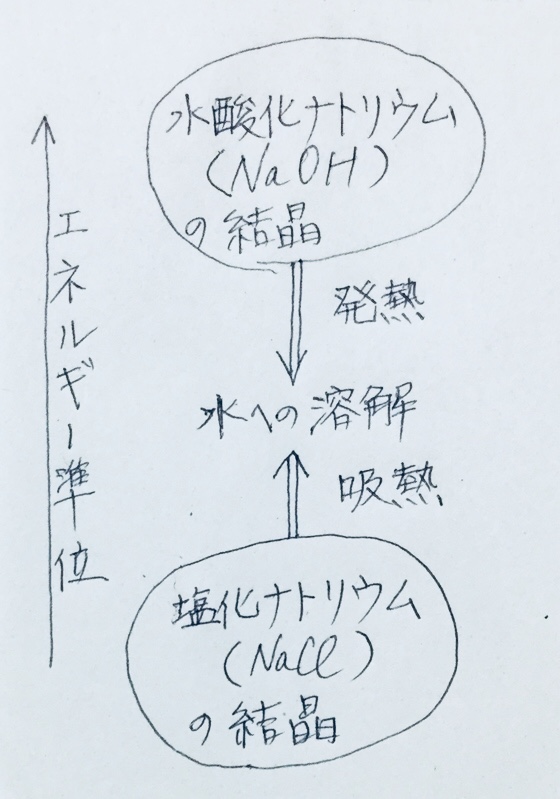 水酸化ナトリウム
(NaOH)
の結晶
発熱
エネルギー準位
水への溶解
吸熱
塩化ナトリウム
(NaCl)
の結晶